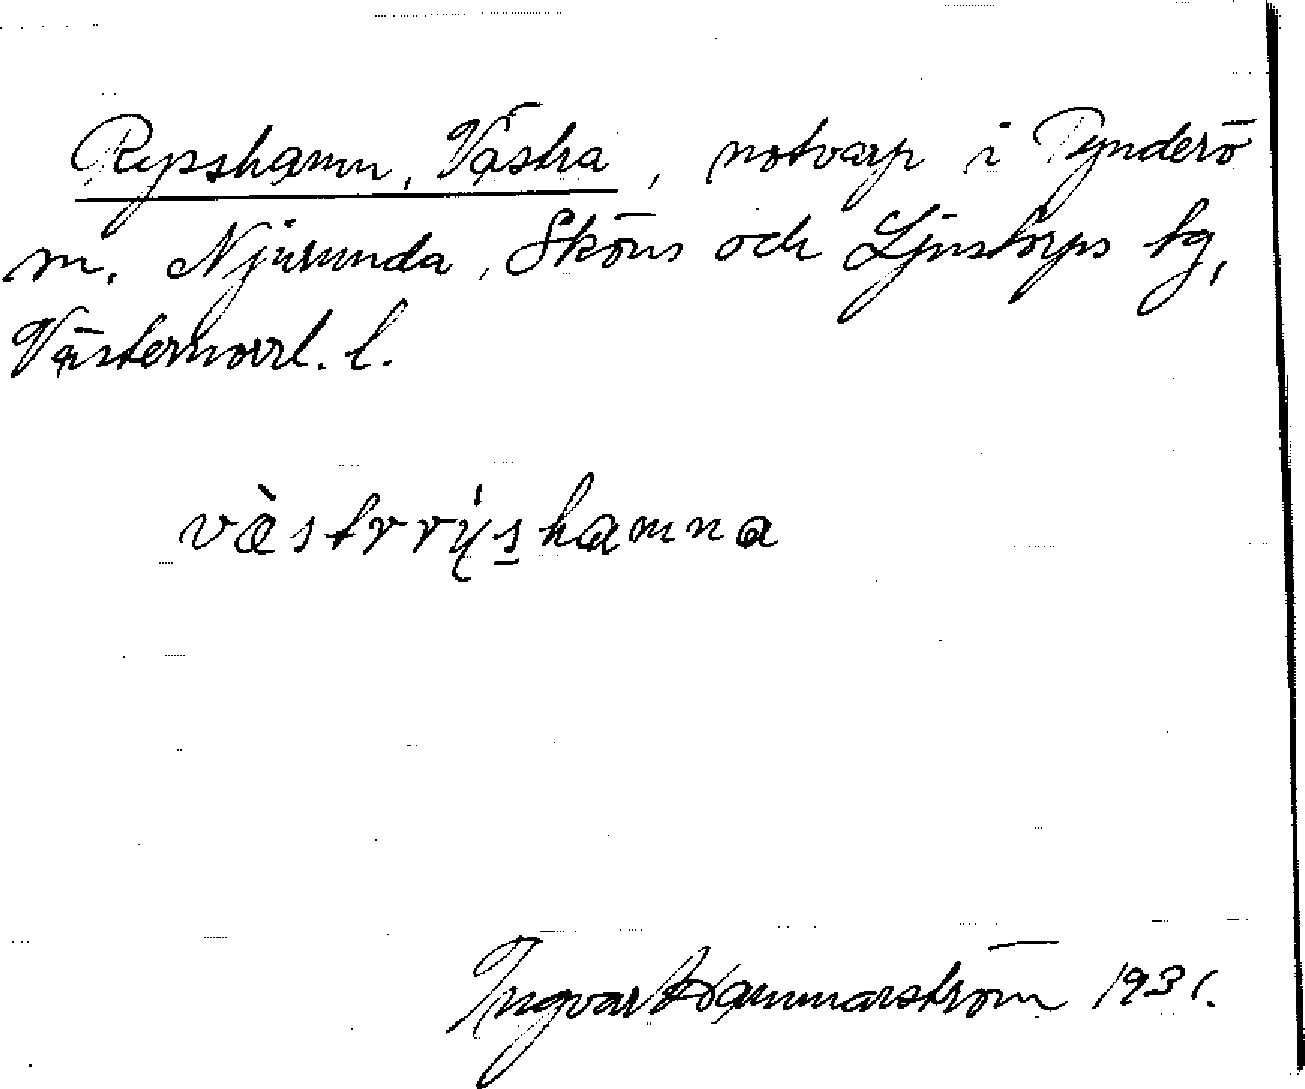 Rysshamn, Västra, notvarp i Tynderö
m. Njurunda, Sköns och Ljustorps tg,
Västernorrl. l.
väst rryshamna
Ingvar Hammarström 1931.